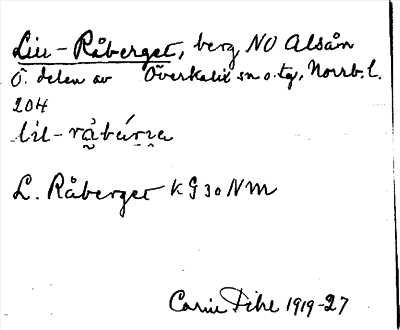 Lill-Råberget, berg NO Alsån
Ö. delen av Överkalix sn o. tg, Norrb. l.
204
lil-rå̰bár̰ḭa
L. Råberget KG30NM
Carin Pihl 1919-27